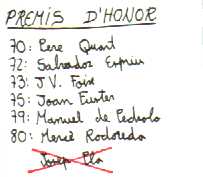 PREMIS D'HONOR
70: Pere Quart
72: Salvador Espriu
73: J.V. Foix
75: Joan Fuster
79: Manuel de Pedrolo
80: Mercè Rodoreda
Josep Pla